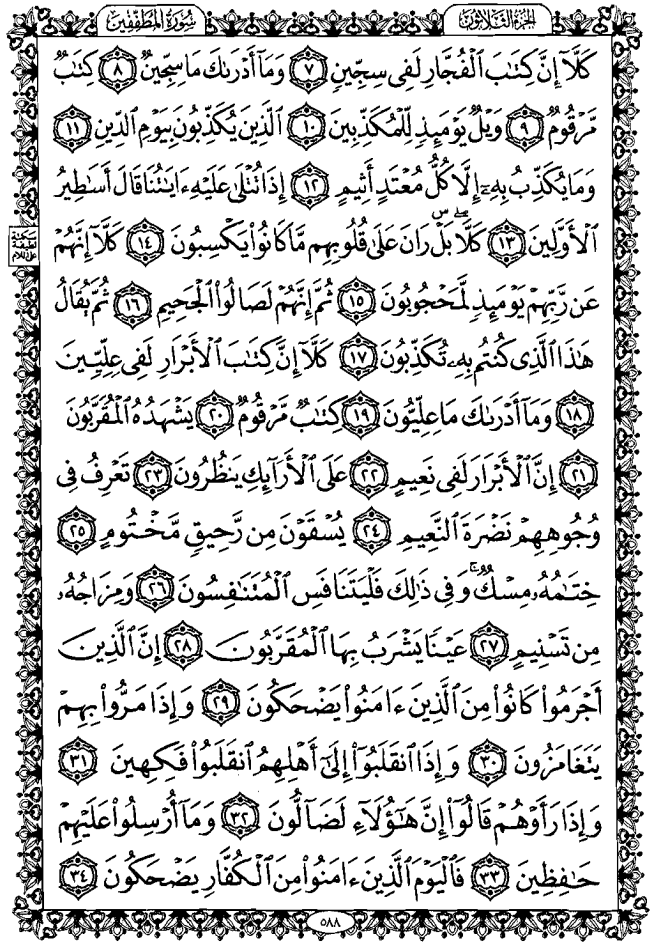 سُورَةُ المُطَفِّفِين
الجُزءُ الثَّلَاثُونَ
كَلَّآ إِنَّ كِتَٰبَ ٱلْفُجَّارِ لَفِى سِجِّينٍ ٧ وَمَآ أَدْرَىٰكَ مَا سِجِّينٌ ٨ كِتَٰبٌ
مَّرْقُومٌ ٩ وَيْلٌ يَوْمَئِذٍ لِّلْمُكَذِّبِينَ ١٠ ٱلَّذِينَ يُكَذِّبُونَ بِيَوْمِ ٱلدِّينِ ١١
وَمَا يُكَذِّبُ بِهِۦٓ إِلَّا كُلُّ مُعْتَدٍ أَثِيمٍ ١٢ إِذَا تُتْلَىٰ عَلَيْهِ ءَايَٰتُنَا قَالَ أَسَٰطِيرُ
ٱلْأَوَّلِينَ ١٣ كَلَّا ۖ بَلْ ۜ رَانَ عَلَىٰ قُلُوبِهِم مَّا كَانُوا۟ يَكْسِبُونَ ١٤ كَلَّآ إِنَّهُمْ
سكتة لطيفة على اللام
عَن رَّبِّهِمْ يَوْمَئِذٍ لَّمَحْجُوبُونَ ١٥ ثُمَّ إِنَّهُمْ لَصَالُوا۟ ٱلْجَحِيمِ ١٦ ثُمَّ يُقَالُ
هَٰذَا ٱلَّذِى كُنتُم بِهِۦ تُكَذِّبُونَ ١٧ كَلَّآ إِنَّ كِتَٰبَ ٱلْأَبْرَارِ لَفِى عِلِّيِّينَ
١٨ وَمَآ أَدْرَىٰكَ مَا عِلِّيُّونَ ١٩ كِتَٰبٌ مَّرْقُومٌ ٢٠ يَشْهَدُهُ ٱلْمُقَرَّبُونَ
٢١ إِنَّ ٱلْأَبْرَارَ لَفِى نَعِيمٍ ٢٢ عَلَى ٱلْأَرَآئِكِ يَنظُرُونَ ٢٣ تَعْرِفُ فِى
وُجُوهِهِمْ نَضْرَةَ ٱلنَّعِيمِ ٢٤ يُسْقَوْنَ مِن رَّحِيقٍ مَّخْتُومٍ ٢٥
خِتَٰمُهُۥ مِسْكٌ ۚ وَفِى ذَٰلِكَ فَلْيَتَنَافَسِ ٱلْمُتَنَٰفِسُونَ ٢٦ وَمِزَاجُهُۥ
مِن تَسْنِيمٍ ٢٧ عَيْنًا يَشْرَبُ بِهَا ٱلْمُقَرَّبُونَ ٢٨ إِنَّ ٱلَّذِينَ
أَجْرَمُوا۟ كَانُوا۟ مِنَ ٱلَّذِينَ ءَامَنُوا۟ يَضْحَكُونَ ٢٩ وَإِذَا مَرُّوا۟ بِهِمْ
يَتَغَامَزُونَ ٣٠ وَإِذَا ٱنقَلَبُوٓا۟ إِلَىٰٓ أَهْلِهِمُ ٱنقَلَبُوا۟ فَكِهِينَ ٣١
وَإِذَا رَأَوْهُمْ قَالُوٓا۟ إِنَّ هَٰٓؤُلَآءِ لَضَآلُّونَ ٣٢ وَمَآ أُرْسِلُوا۟ عَلَيْهِمْ
حَٰفِظِينَ ٣٣ فَٱلْيَوْمَ ٱلَّذِينَ ءَامَنُوا۟ مِنَ ٱلْكُفَّارِ يَضْحَكُونَ ٣٤
٥٨٨